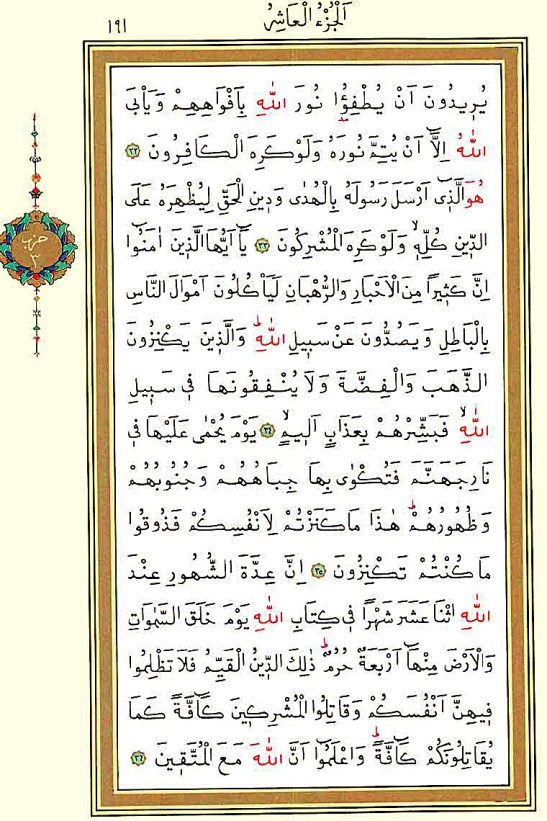 اَلْجُزْءُ الْعَاشِرُ
١٩١
يُرِيدُونَ اَنْ يُطْفِؤُ۫ا نُورَ اللّٰهِ بِاَفْوَاهِهِمْ وَيَأْبَى
اللّٰهُ اِلَّٓا اَنْ يُتِمَّ نُورَهُ وَلَوْ كَرِهَ الْكَافِرُونَ ﴿٣٢﴾
هُوَ الَّذ۪ٓي اَرْسَلَ رَسُولَهُ بِالْهُدٰى وَد۪ينِ الْحَقِّ لِيُظْهِرَهُ عَلَى
الدّ۪ينِ كُلِّه۪ۙ وَلَوْ كَرِهَ الْمُشْرِكُونَ ﴿٣٣﴾ يَٓا اَيُّهَا الَّذ۪ينَ اٰمَنُٓوا
اِنَّ كَث۪يرًا مِنَ الْاَحْبَارِ وَالرُّهْبَانِ لَيَأْكُلُونَ اَمْوَالَ النَّاسِ
بِالْبَاطِلِ وَيَصُدُّونَ عَنْ سَب۪يلِ اللّٰهِۜ وَالَّذ۪ينَ يَكْنِزُونَ
الذَّهَبَ وَالْفِضَّةَ وَلَا يُنْفِقُونَهَا ف۪ي سَب۪يلِ
اللّٰهِۙ فَبَشِّرْهُمْ بِعَذَابٍ اَل۪يمٍۙ ﴿٣٤﴾ يَوْمَ يُحْمٰى عَلَيْهَا ف۪ي
نَارِ جَهَنَّمَ فَتُكْوٰى بِهَا جِبَاهُهُمْ وَجُنُوبُهُمْ
وَظُهُورُهُمْۜ هٰذَا مَا كَنَزْتُمْ لِاَنْفُسِكُمْ فَذُوقُوا
مَا كُنْتُمْ تَكْنِزُونَ ﴿٣٥﴾ اِنَّ عِدَّةَ الشُّهُورِ عِنْدَ
اللّٰهِ اثْنَا عَشَرَ شَهْرًا ف۪ي كِتَابِ اللّٰهِ يَوْمَ خَلَقَ السَّمٰوَاتِ
وَالْاَرْضَ مِنْهَٓا اَرْبَعَةٌ حُرُمٌۜ ذٰلِكَ الدّ۪ينُ الْقَيِّمُ فَلَا تَظْلِمُوا
ف۪يهِنَّ اَنْفُسَكُمْ وَقَاتِلُوا الْمُشْرِك۪ينَ كَٓافَّةً كَمَا
يُقَاتِلُونَكُمْ كَٓافَّةًۜ وَاعْلَمُٓوا اَنَّ اللّٰهَ مَعَ الْمُتَّق۪ينَ ﴿٣٦﴾
حزب
٣